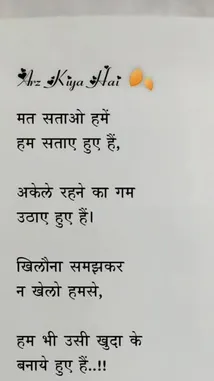 Arz Kiya Hai
मत सताओ हमें
हम सताए हुए हैं,
अकेले रहने का गम
उठाए हुए हैं।
खिलौना समझकर
न खेलो हमसे,
हम भी उसी खुदा के
बनाये हुए हैं..!!